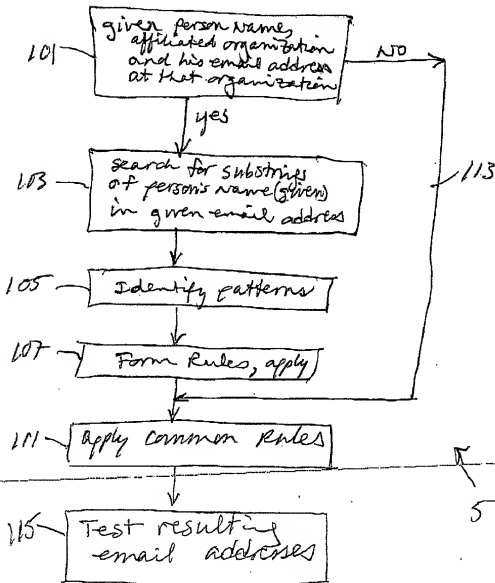 101
given person names,
affiliated organization
and his email address
at that organization
NO
yes
113
103
search for substrings
of person's name (given)
in given email address
105
Identify patterns
107
Form Rules, apply
111
apply common Rules
5
115
Test resulting
email addresses